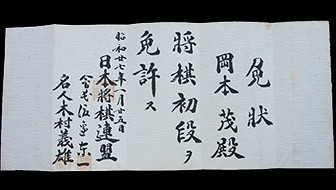 免状
岡本茂殿
将棋初段ヲ
免許ス
昭和廿七年一月廿五日
日本将棋連盟
会長渡辺東一
名人木村義雄